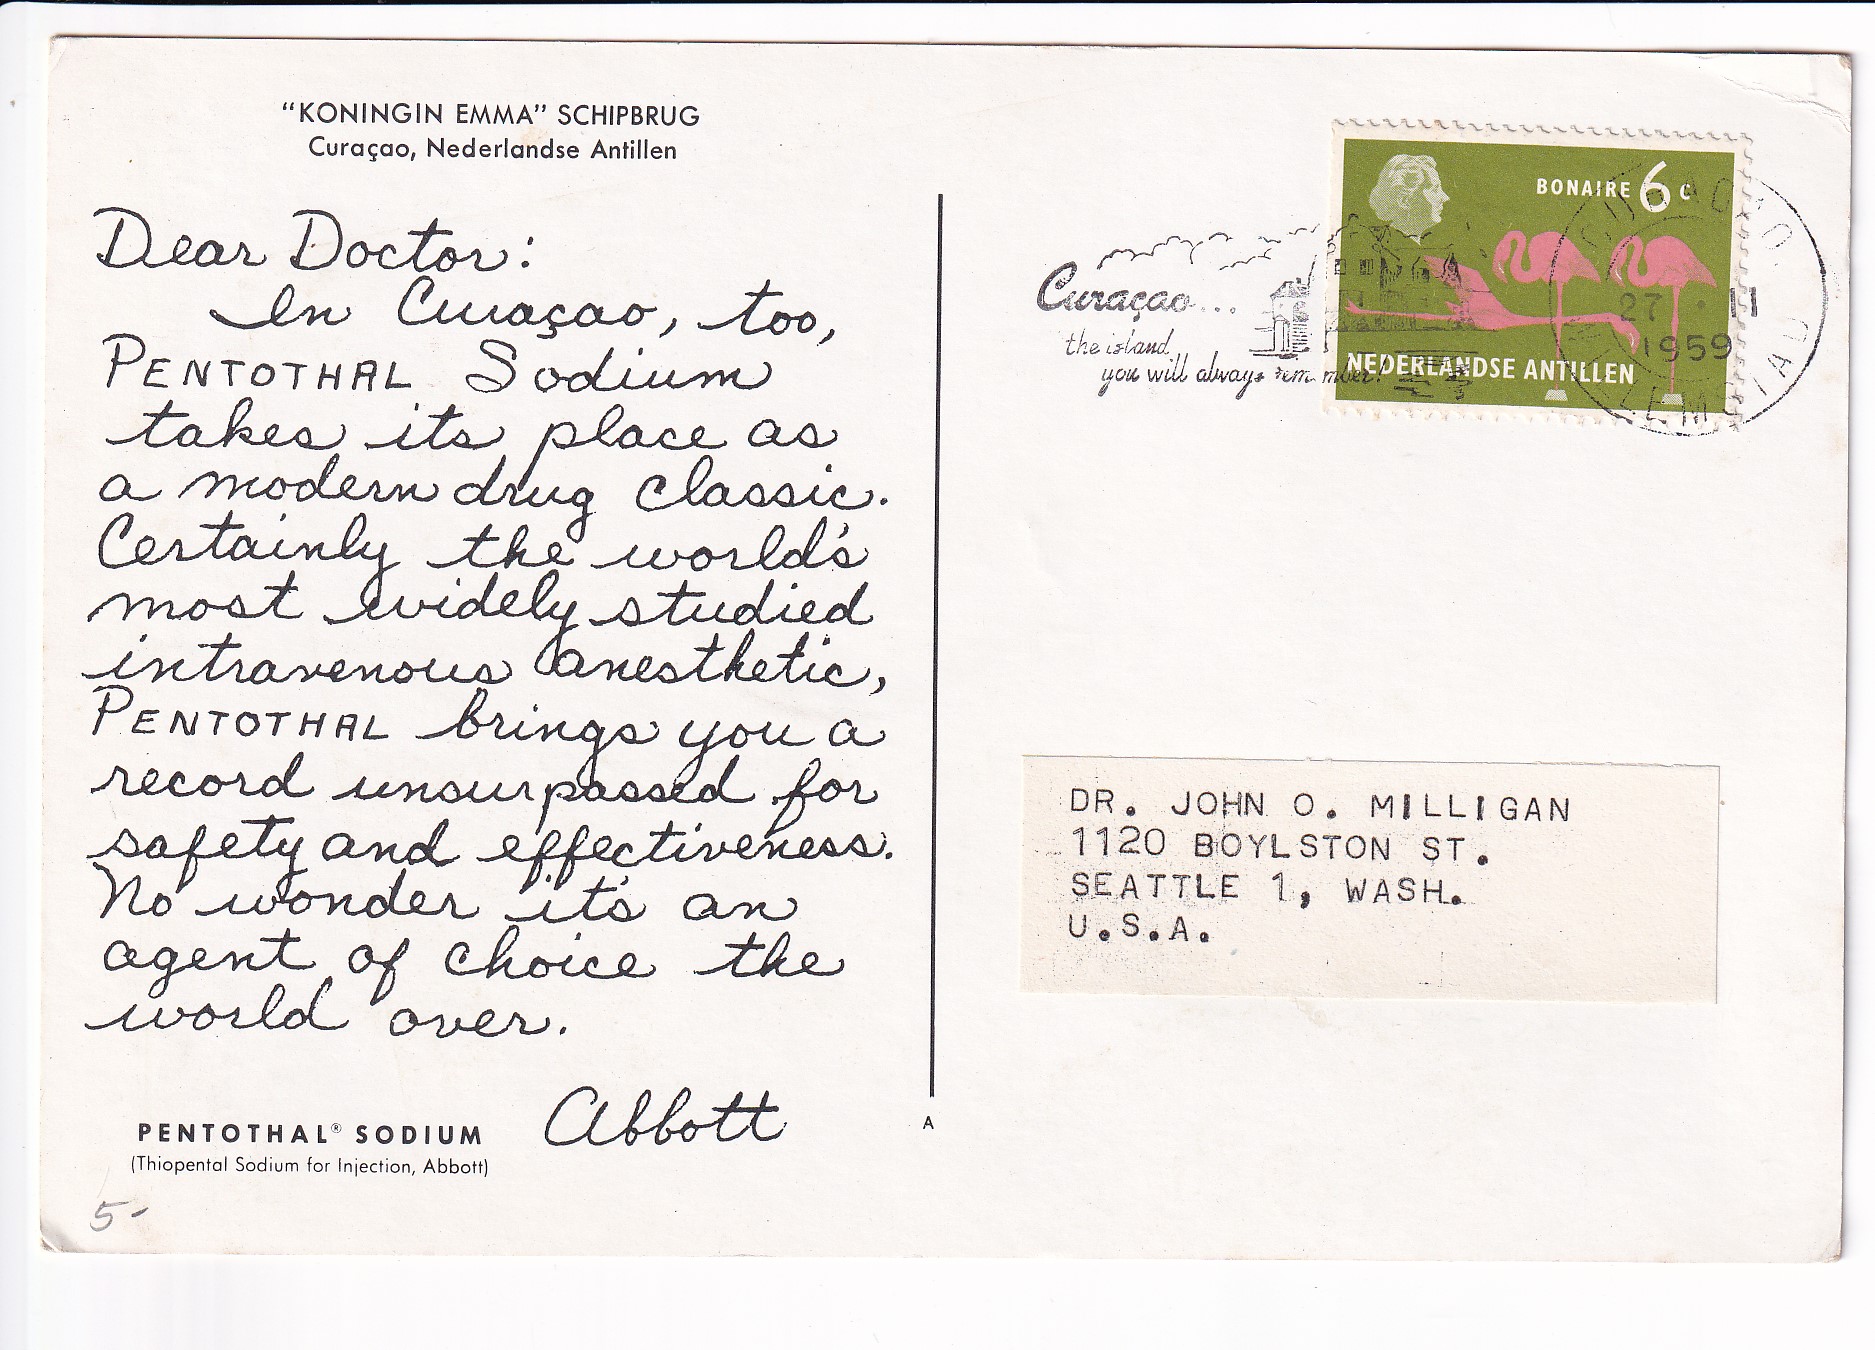 “KONINGIN EMMA” SCHIPBRUG
Curaçao, Nederlandse Antillen
Dear Doctor:
In Curaçao, too,
PENTOTHAL Sodium
takes its place as
a modern drug classic.
Certainly the world's
most widely studied
intravenous anesthetic,
PENTOTHAL brings you a
record unsurpassed for
safety and effectiveness.
No wonder it's an
agent of choice the
world over.
Abbott
PENTOTHAL® SODIUM
(Thiopental Sodium for Injection, Abbott)
5-
A
BONAIRE 6 c
NEDERLANDSE ANTILLEN
Curaçao...
the island
you will always remember!
CURAÇAO
27 · 11
1959
WILLEMSTAD
DR. JOHN O. MILLIGAN
1120 BOYLSTON ST.
SEATTLE 1, WASH.
U.S.A.